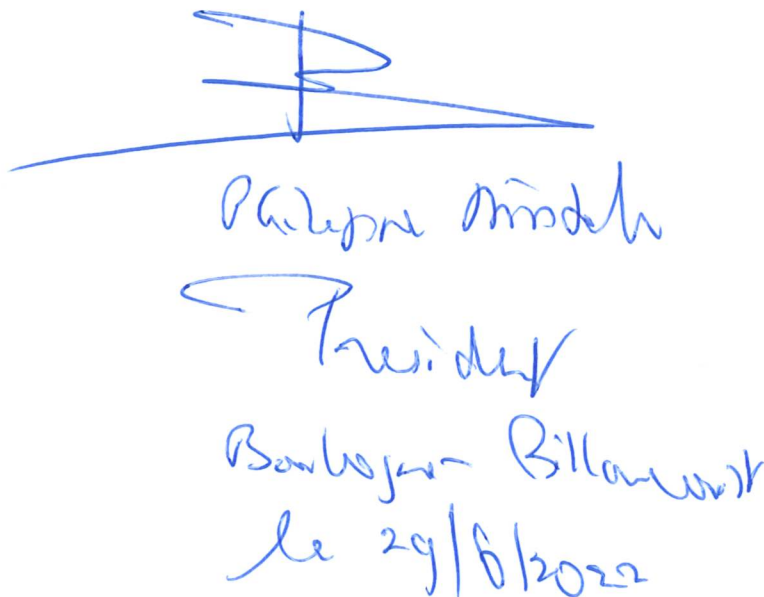 Philippe
Président
Boulogne Billancourt
le 29/6/2022